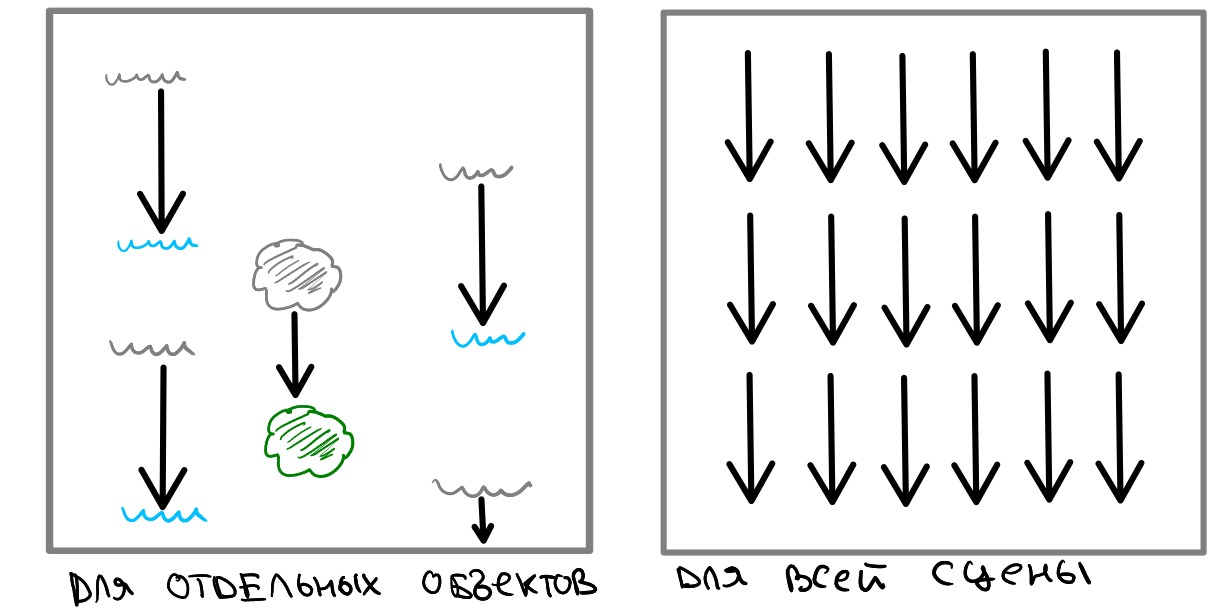 для отдельных объектов
для всей сцены